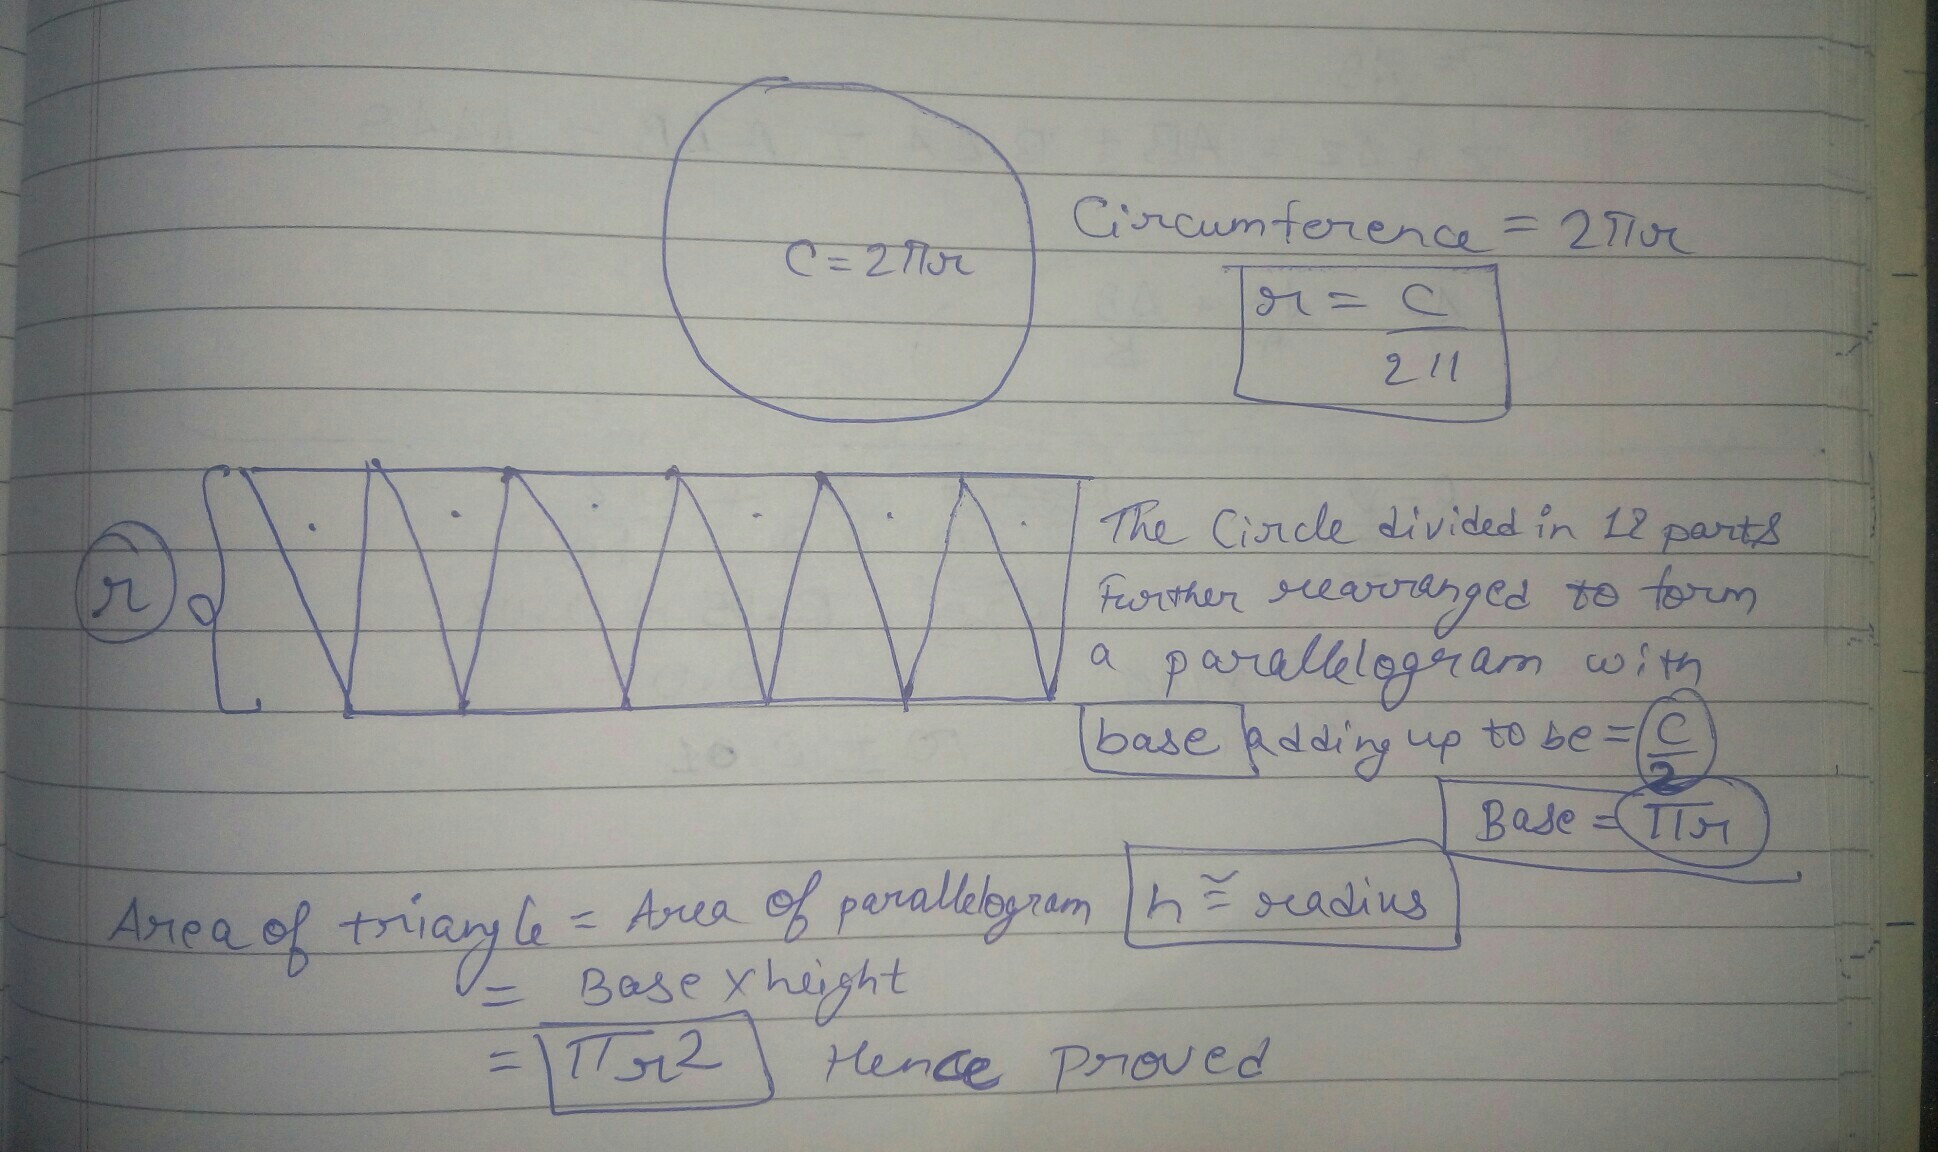 Circumference = 2πr
C = 2πr
r = C
2π
The Circle divided in 12 parts
Further rearranged to form
r
a parallelogram with
base adding up to be = C
2
Base = πr
Area of triangle = Area of parallelogram h ≅ radius
= Base x height
= πr2 Hence Proved